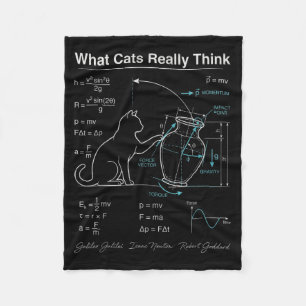 What Cats Really Think
h = v² sin²θ / 2g
R = v² sin(2θ) / g
p = mv
F∆t = ∆p
a = F / m
p⃗ = mv
p⃗ MOMENTUM
IMPACT POINT
FORCE VECTOR
h
g
GRAVITY
TORQUE
Eₖ = 1/2 mv
τ = r × F
a = F / m
p = mv
F = ma
∆p = F∆t
Time
Galileo Galilei Isaac Newton Robert Goddard